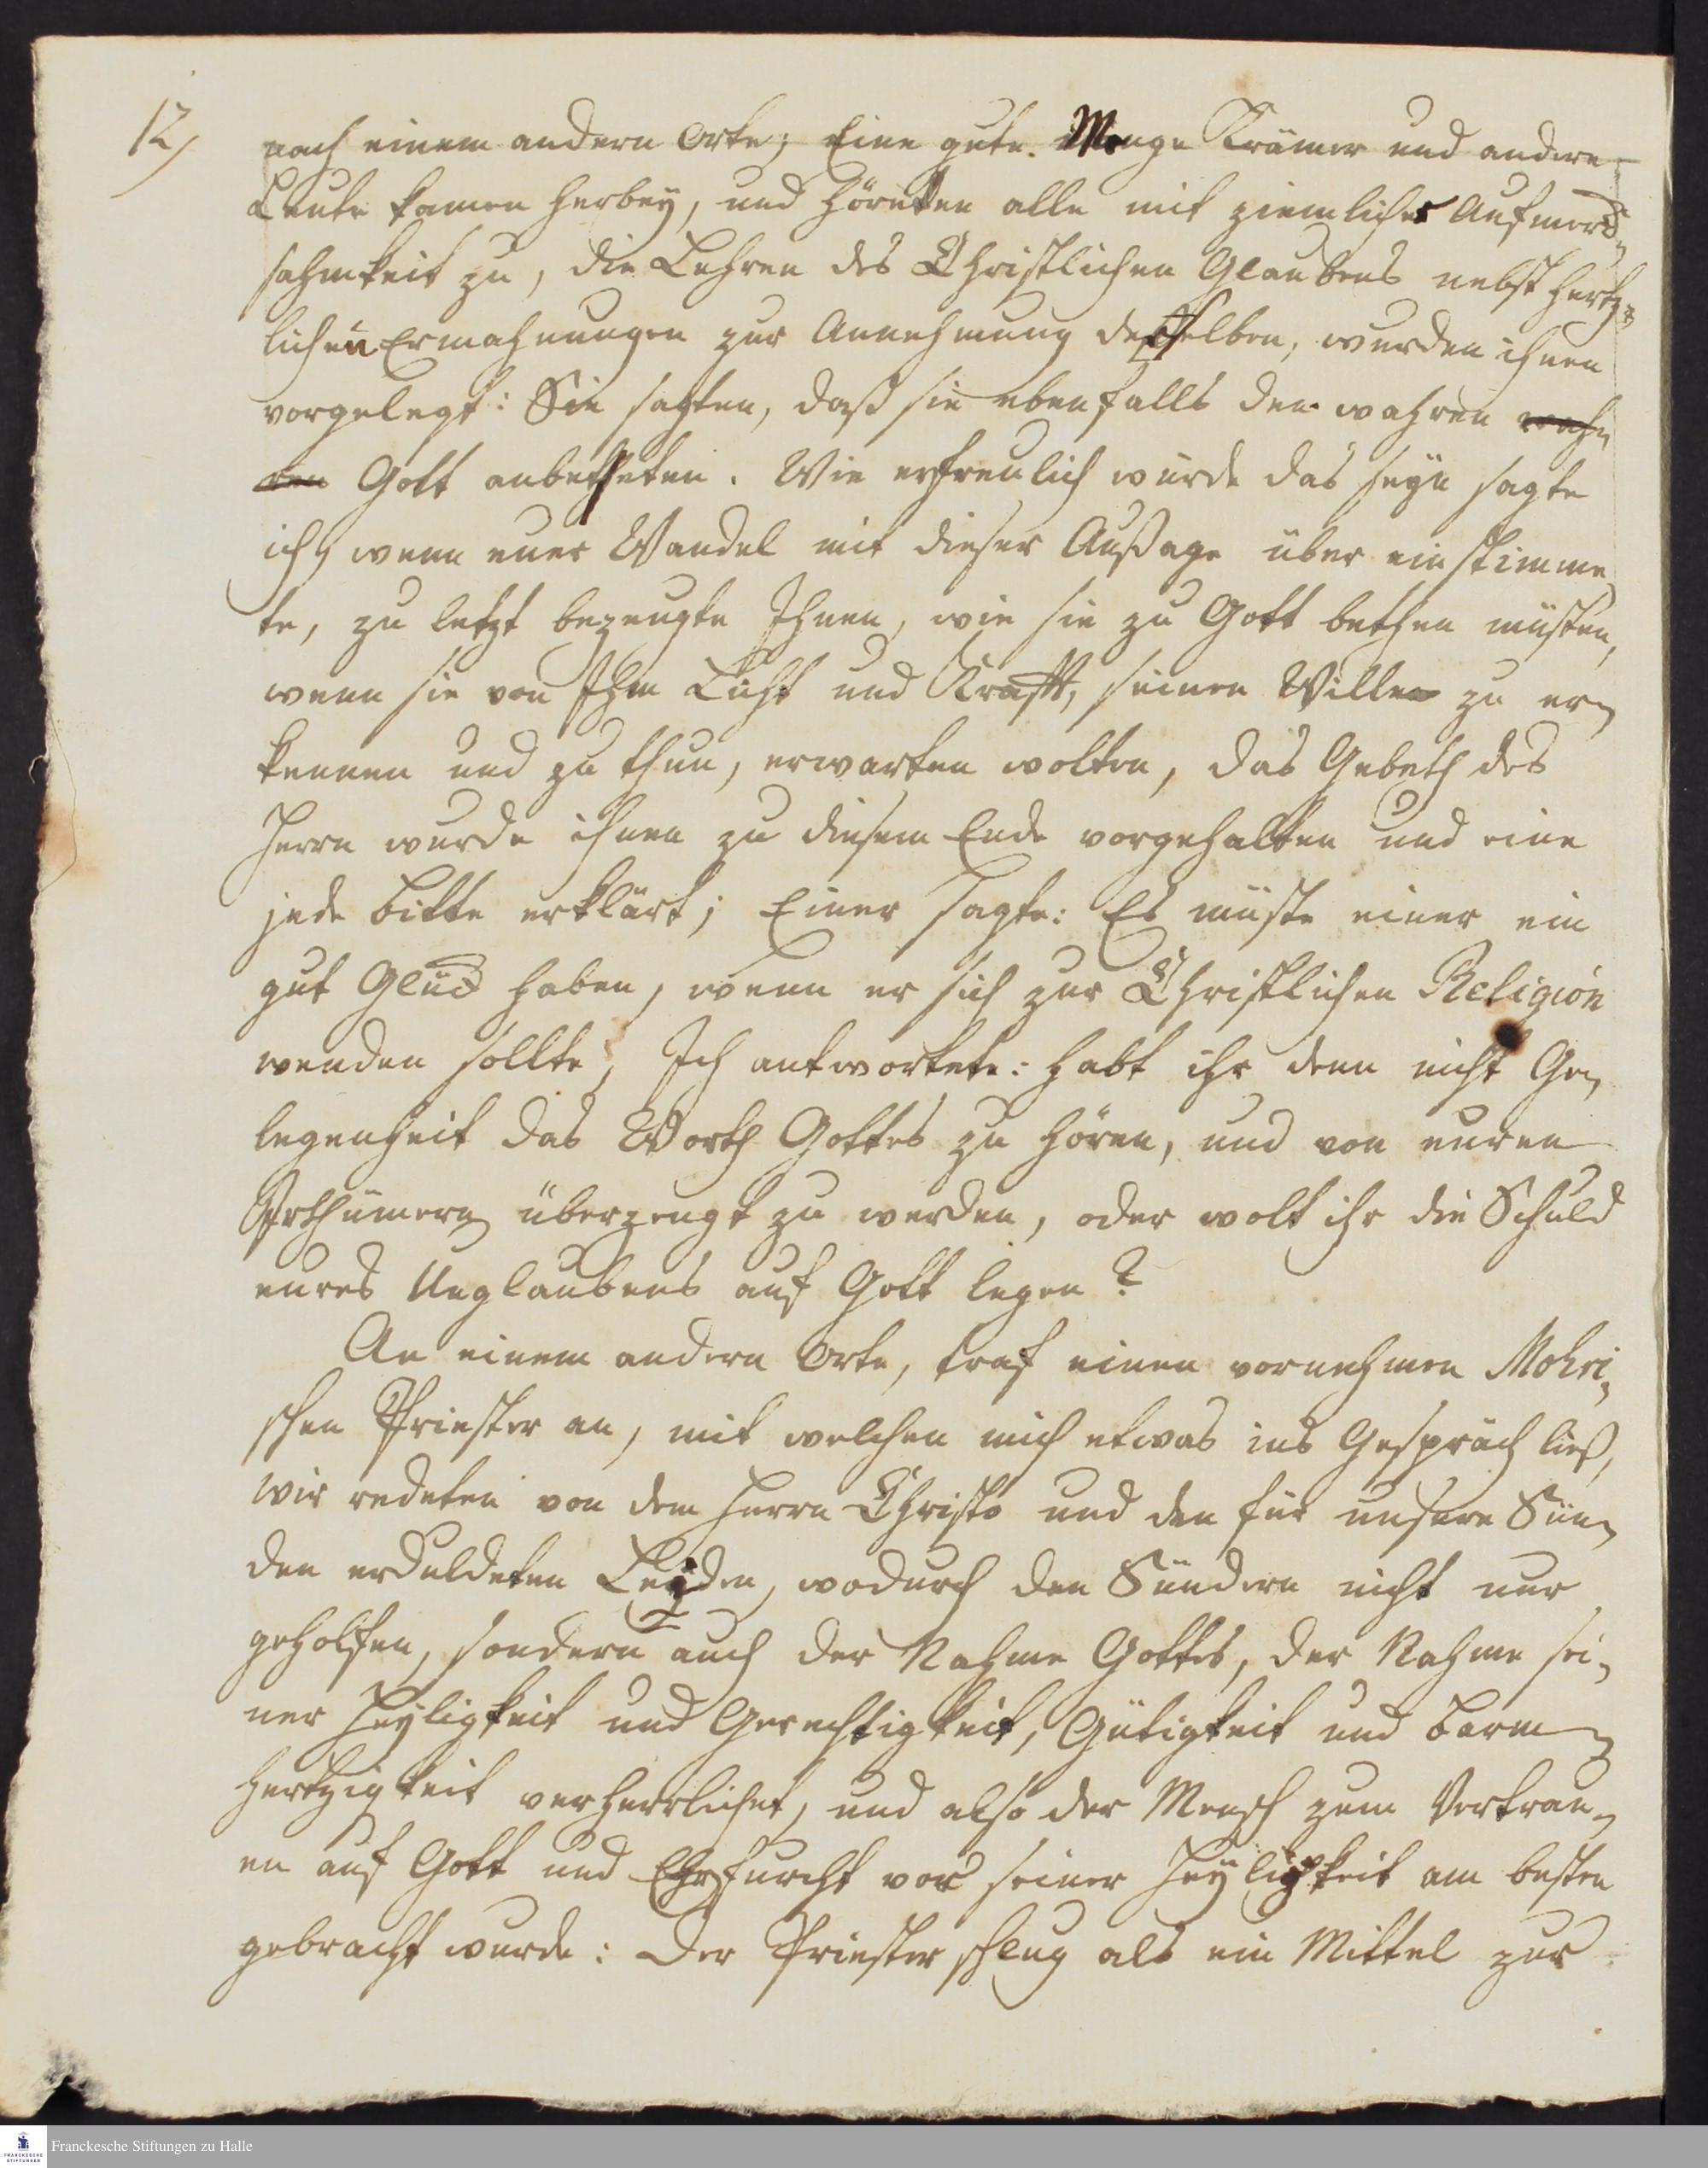 12)
nach einem andern Orte; Eine gute Menge Krämer und andere
Leute kamen herbey, und höreten alle mit ziemlicher Aufmerck-
sahmkeit zu, die Lehren des Christlichen Glaubens nebst hertz-
lichen Ermahnungen zur Annehmung desselben, wurden ihnen
vorgelegt: Sie sagten, daß sie ebenfalls den wahren wah-
ren Gott anbetheten. Wie erfreulich würde das seyn sagte
ich, wenn euer Wandel mit dieser Außage über einstimme
te, zu letzt bezeugte Ihnen, wie sie zu Gott bethen müsten,
wenn sie von Ihm Licht und Krafft, seinen Willen zu er-
kennen und zu thun, erwarten wolten, das Gebeth des
Herrn wurde ihnen zu diesem Ende vorgehalten und eine
jede Bitte erklärt; Einer sagte: Es müste einer ein
gut Glück haben, wenn er sich zur Christlichen Religion
wenden sollte; Ich antwortete: habt ihr denn nicht Ge-
legenheit das Worth Gottes zu hören, und von euren
Irthümern überzeugt zu werden, oder wolt ihr die Schuld
eures Unglaubens auf Gott legen?
An einem andern Orte, traf einen vornehmen Mohri-
schen Priester an, mit welchen mich etwas ins Gespräch ließ,
wir redeten von dem Herrn Christo und den für unsere Sün-
den erduldeten Leyden, wodurch den Sündern nicht nur
geholfen, sondern auch der Nahme Gottes, der Nahme sei-
ner Heyligkeit und Gerechtigkeit, Gütigkeit und Barm-
hertzigkeit verherrlichet, und also der Mensch zum Vertrau-
en auf Gott und Ehrfurcht vor seiner Heyligkeit am besten
gebracht wurde: Der Priester schlug als ein Mittel zur
Franckesche Stiftungen zu Halle
FRANCKESCHE
STIFTUNGEN